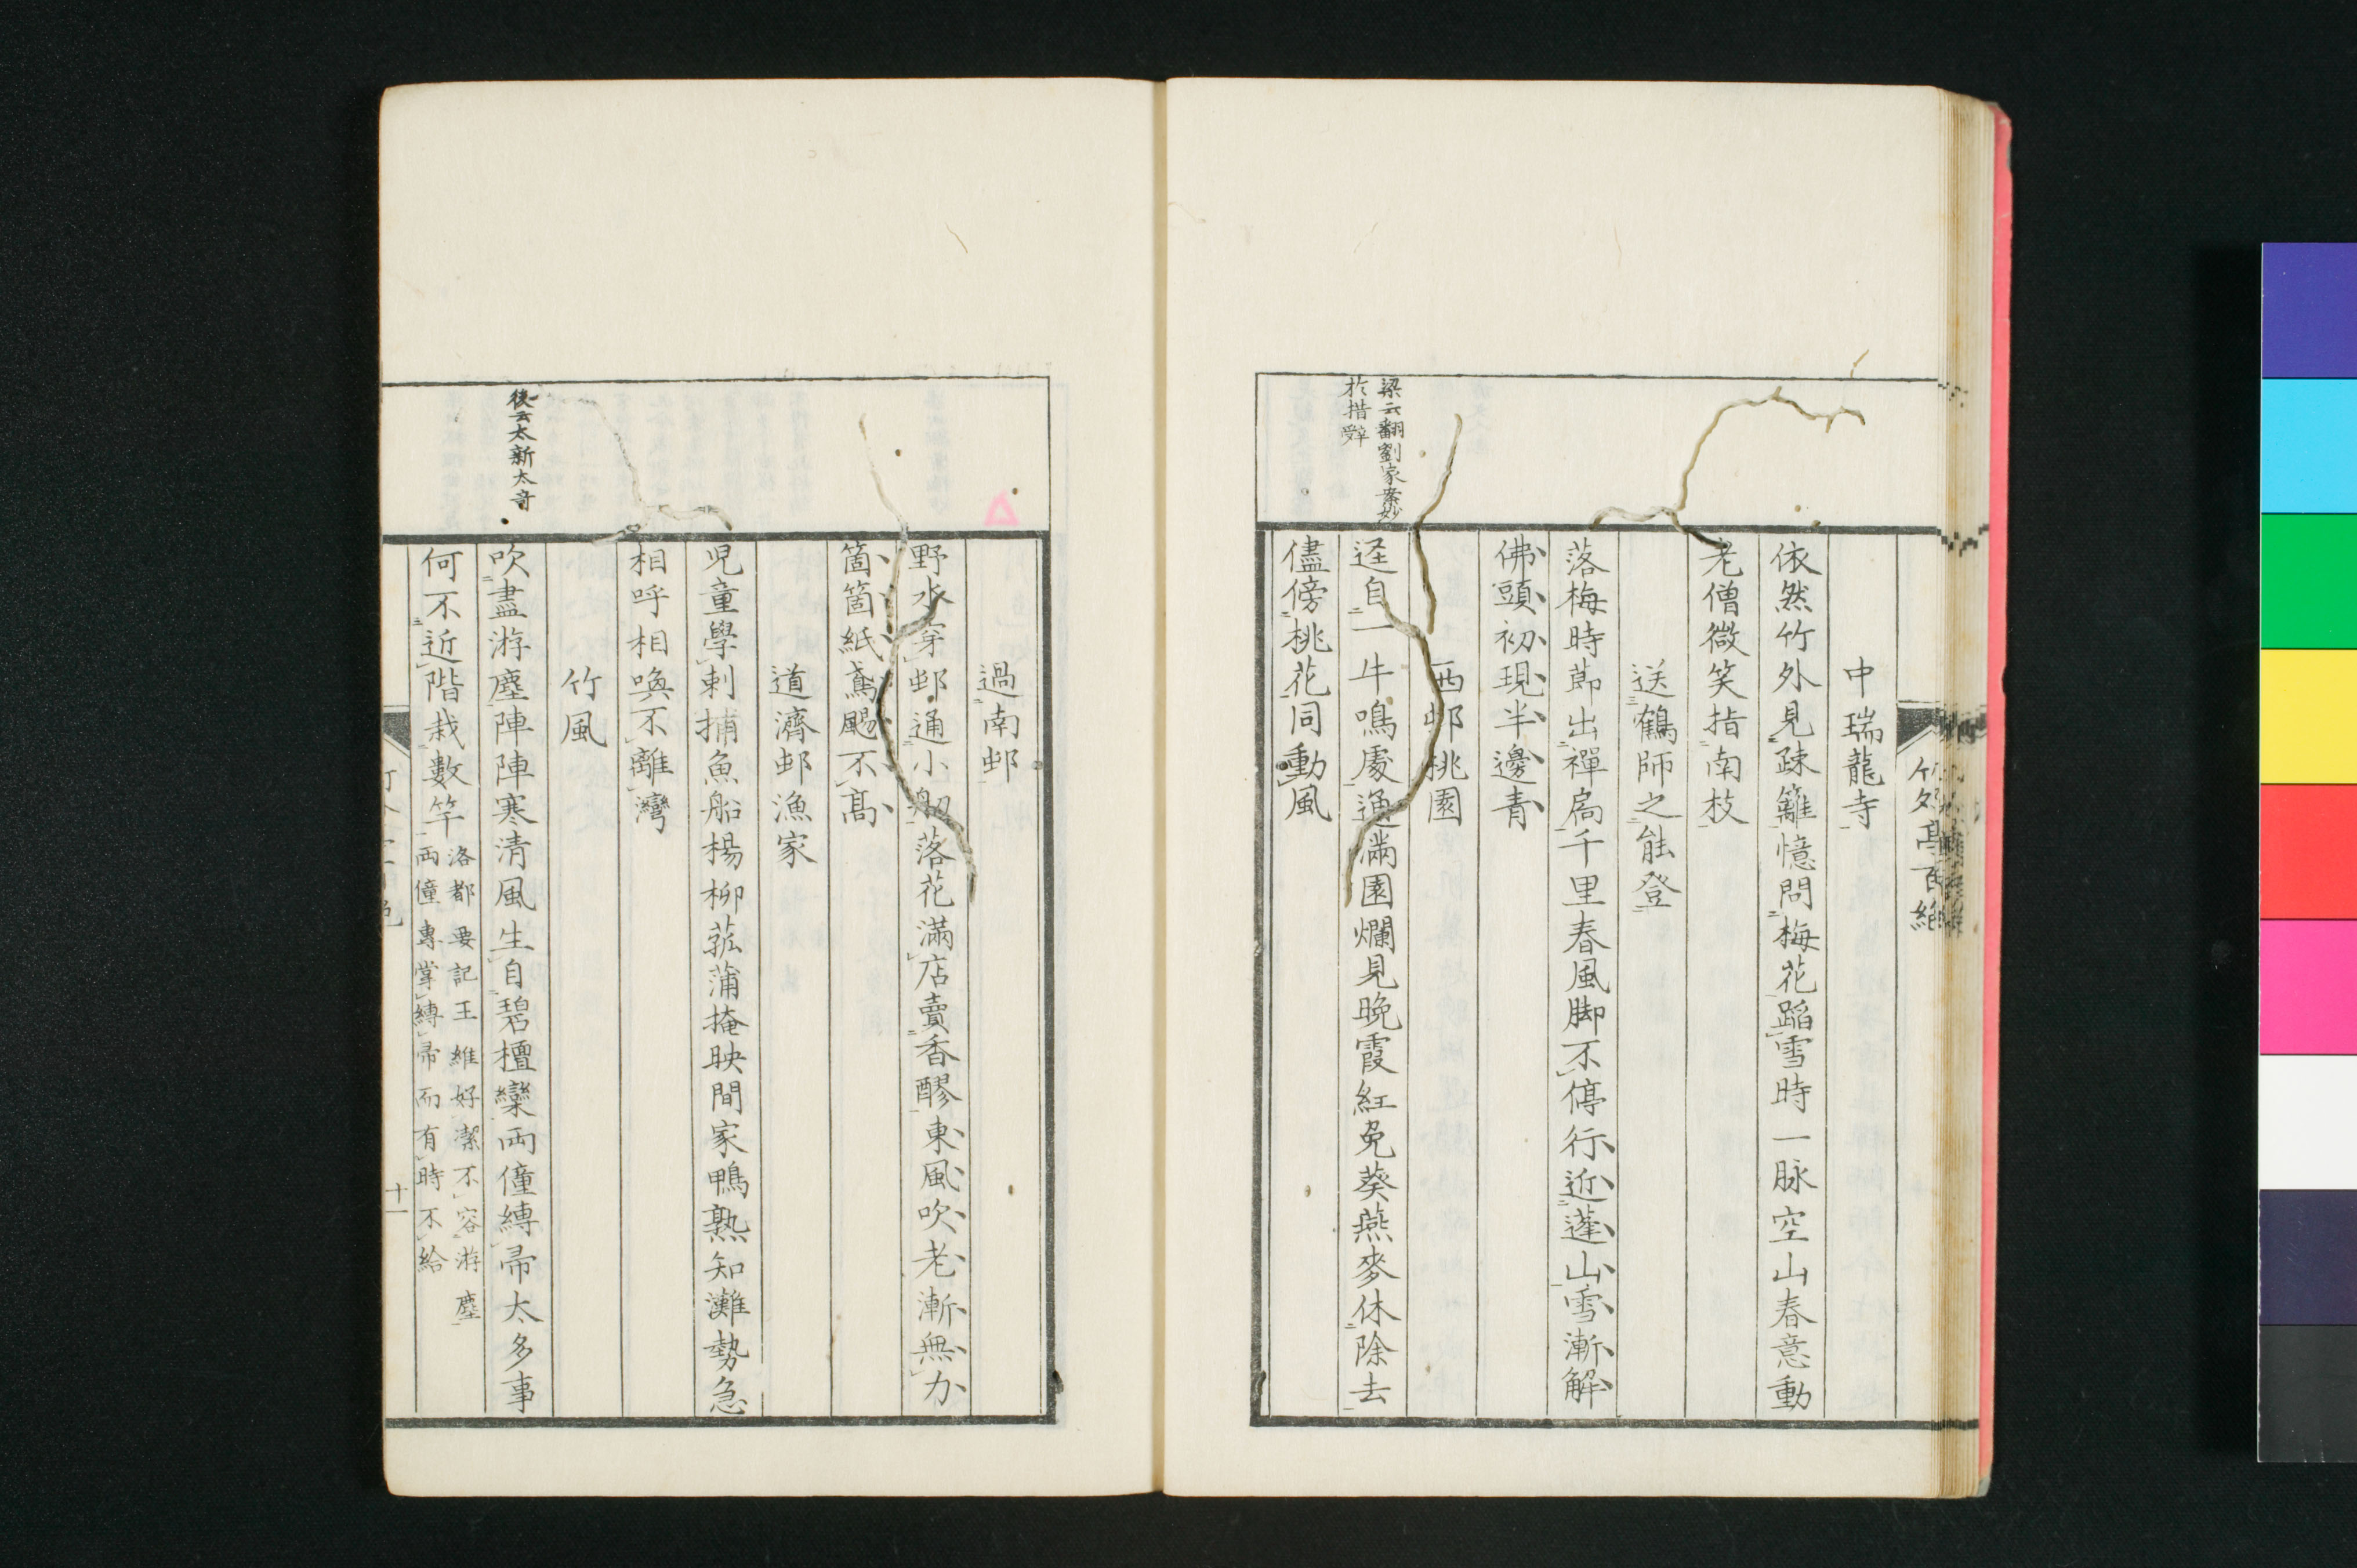 竹外亭百絶
中瑞龍寺
依然竹外見疎籬憶問梅花蹈雪時一脉空山春意動
老僧微笑指南枝
送鶴師之能登
落梅時節出禪扃千里春風脚不停行近蓬山雪漸解
佛頭初現半邊青
西邨桃園
梁云翻劉家案妙
於措辞
逕自一牛鳴處通滿園爛見晚霞紅兔葵燕麥休除去
儘傍桃花同動風
過南邨
野水穿邨通小舠落花滿店賣香醪東風吹老漸無力
箇箇紙鳶颺不高
道濟邨漁家
児童學刺捕魚船楊柳菰蒲掩映間家鴨熟知灘勢急
相呼相喚不離灣
竹風
後云太新太奇
吹盡游塵陣陣寒清風生自碧檀欒両僮縛帚太多事
何不近階栽數竿
洛都要記王維好潔不容游塵
両僮專掌縛帚而有時不給
十一